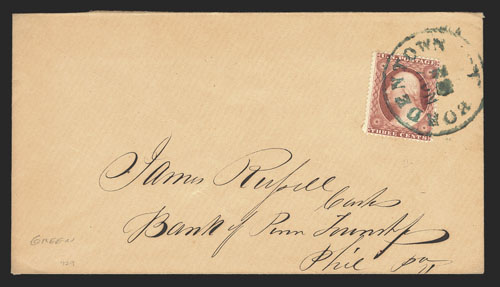 U.S. POSTAGE
THREE CENTS
James Russell
Bank of Penn Township
Phil pa
GREEN